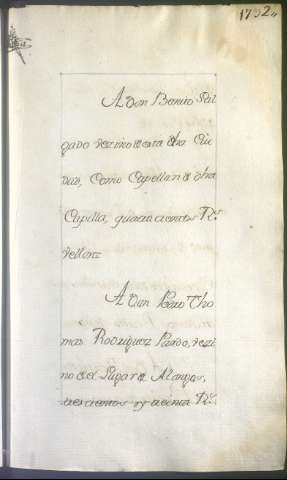 1752
A Don Benito Sal
gado vezino de esta dha Ciu
dad, Como Capellan de dha
Capilla, quatrocientos Rs
vellon
A Don Pedro Tho
mas Rodriguez Pardo, vezi
no de el Lugar de
trescientos y treinta Rs